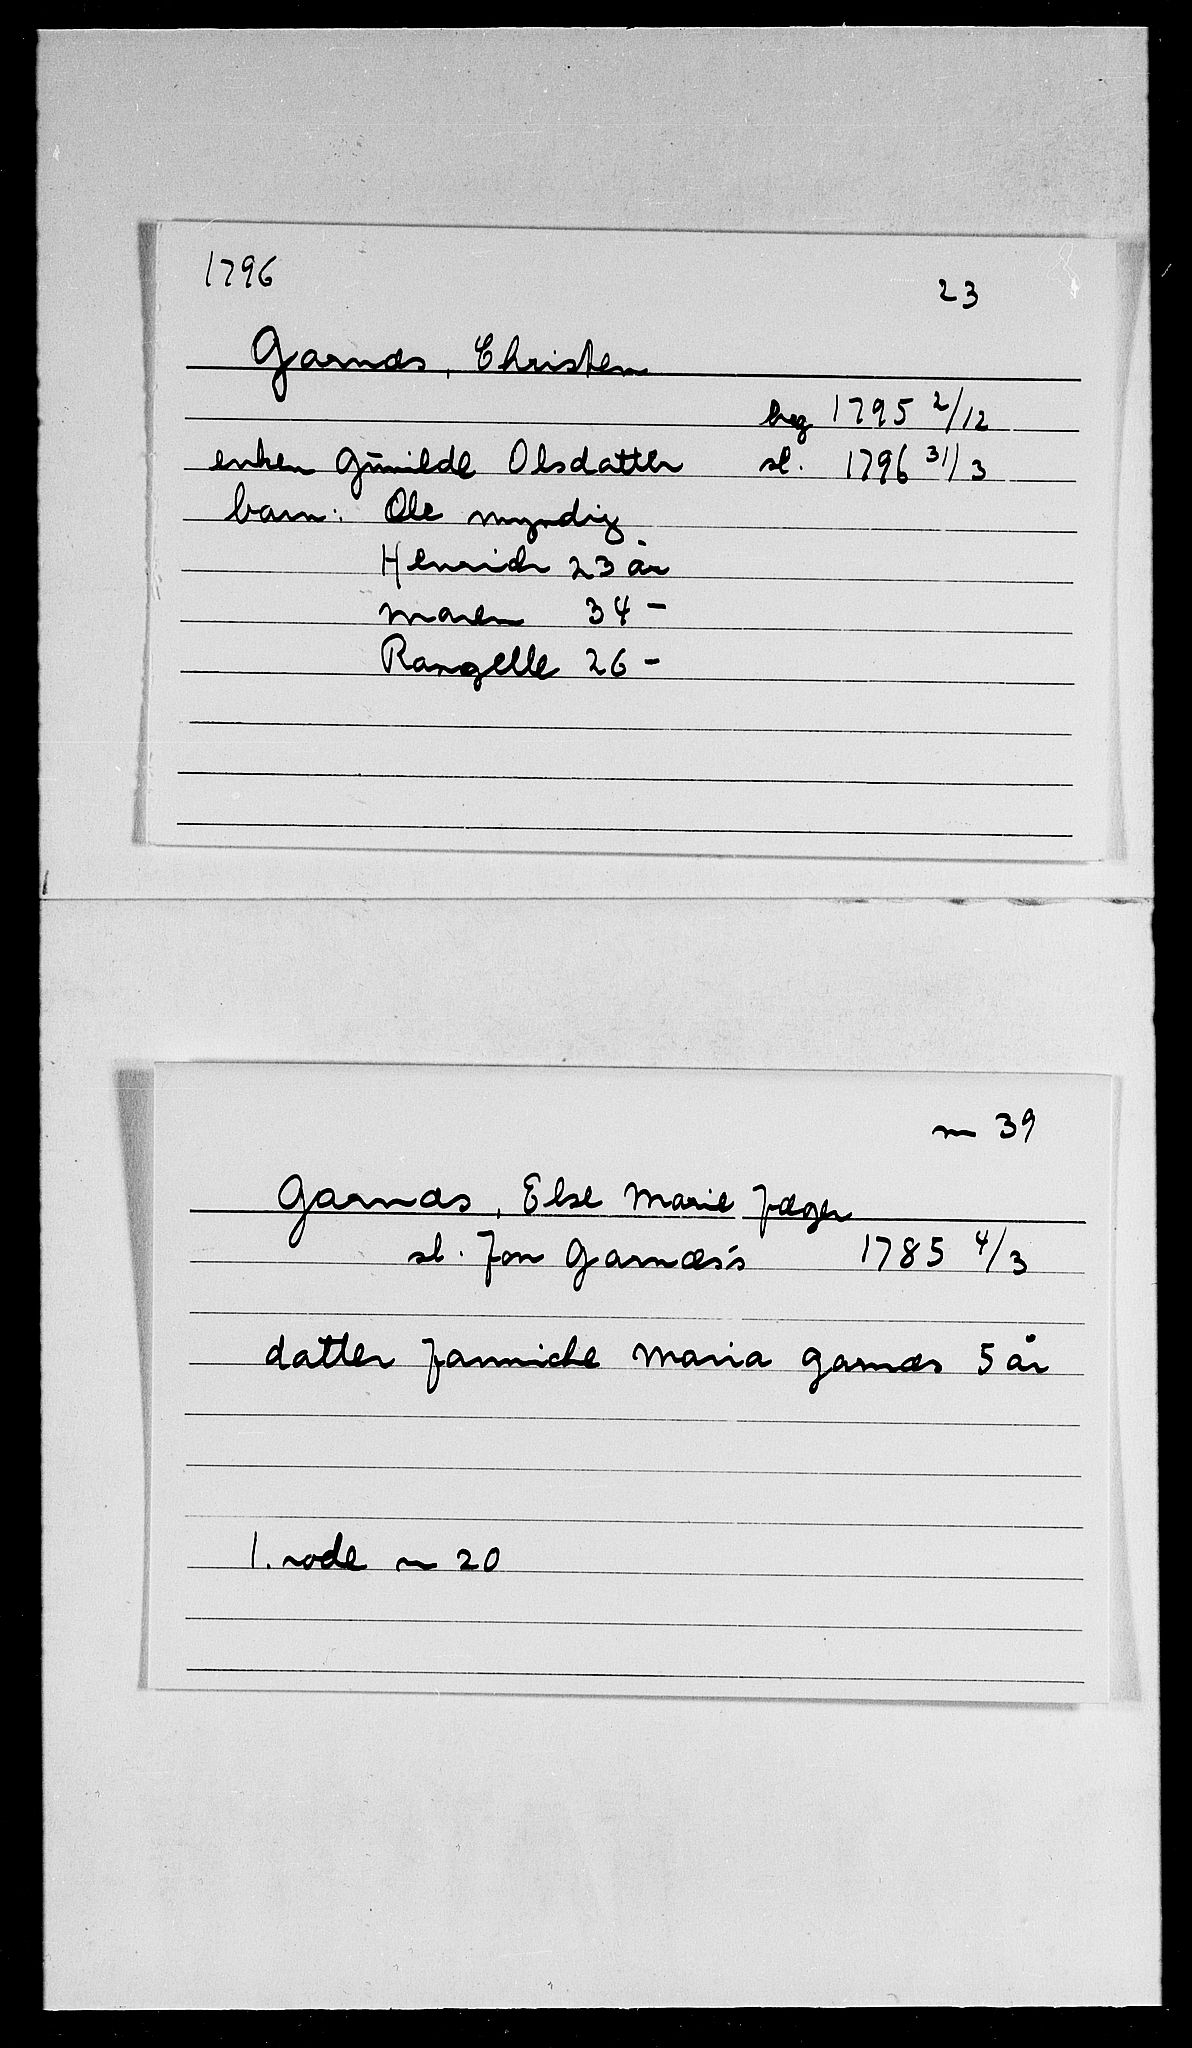 1796
23
Garnæs, Christen
beg 1795 2/12
enken Gunnilde Olsdatter sl. 1796 31/3
barn: Ole myndig
Henrich 23 år
Maren 34 -
Rangelle 26 -
nr 39
Garnæs, Else Marie Jæger
sl. Jon Garnæs's 1785 4/3
datter Jannicke Maria Garnæs 5 år
1. rode nr 20